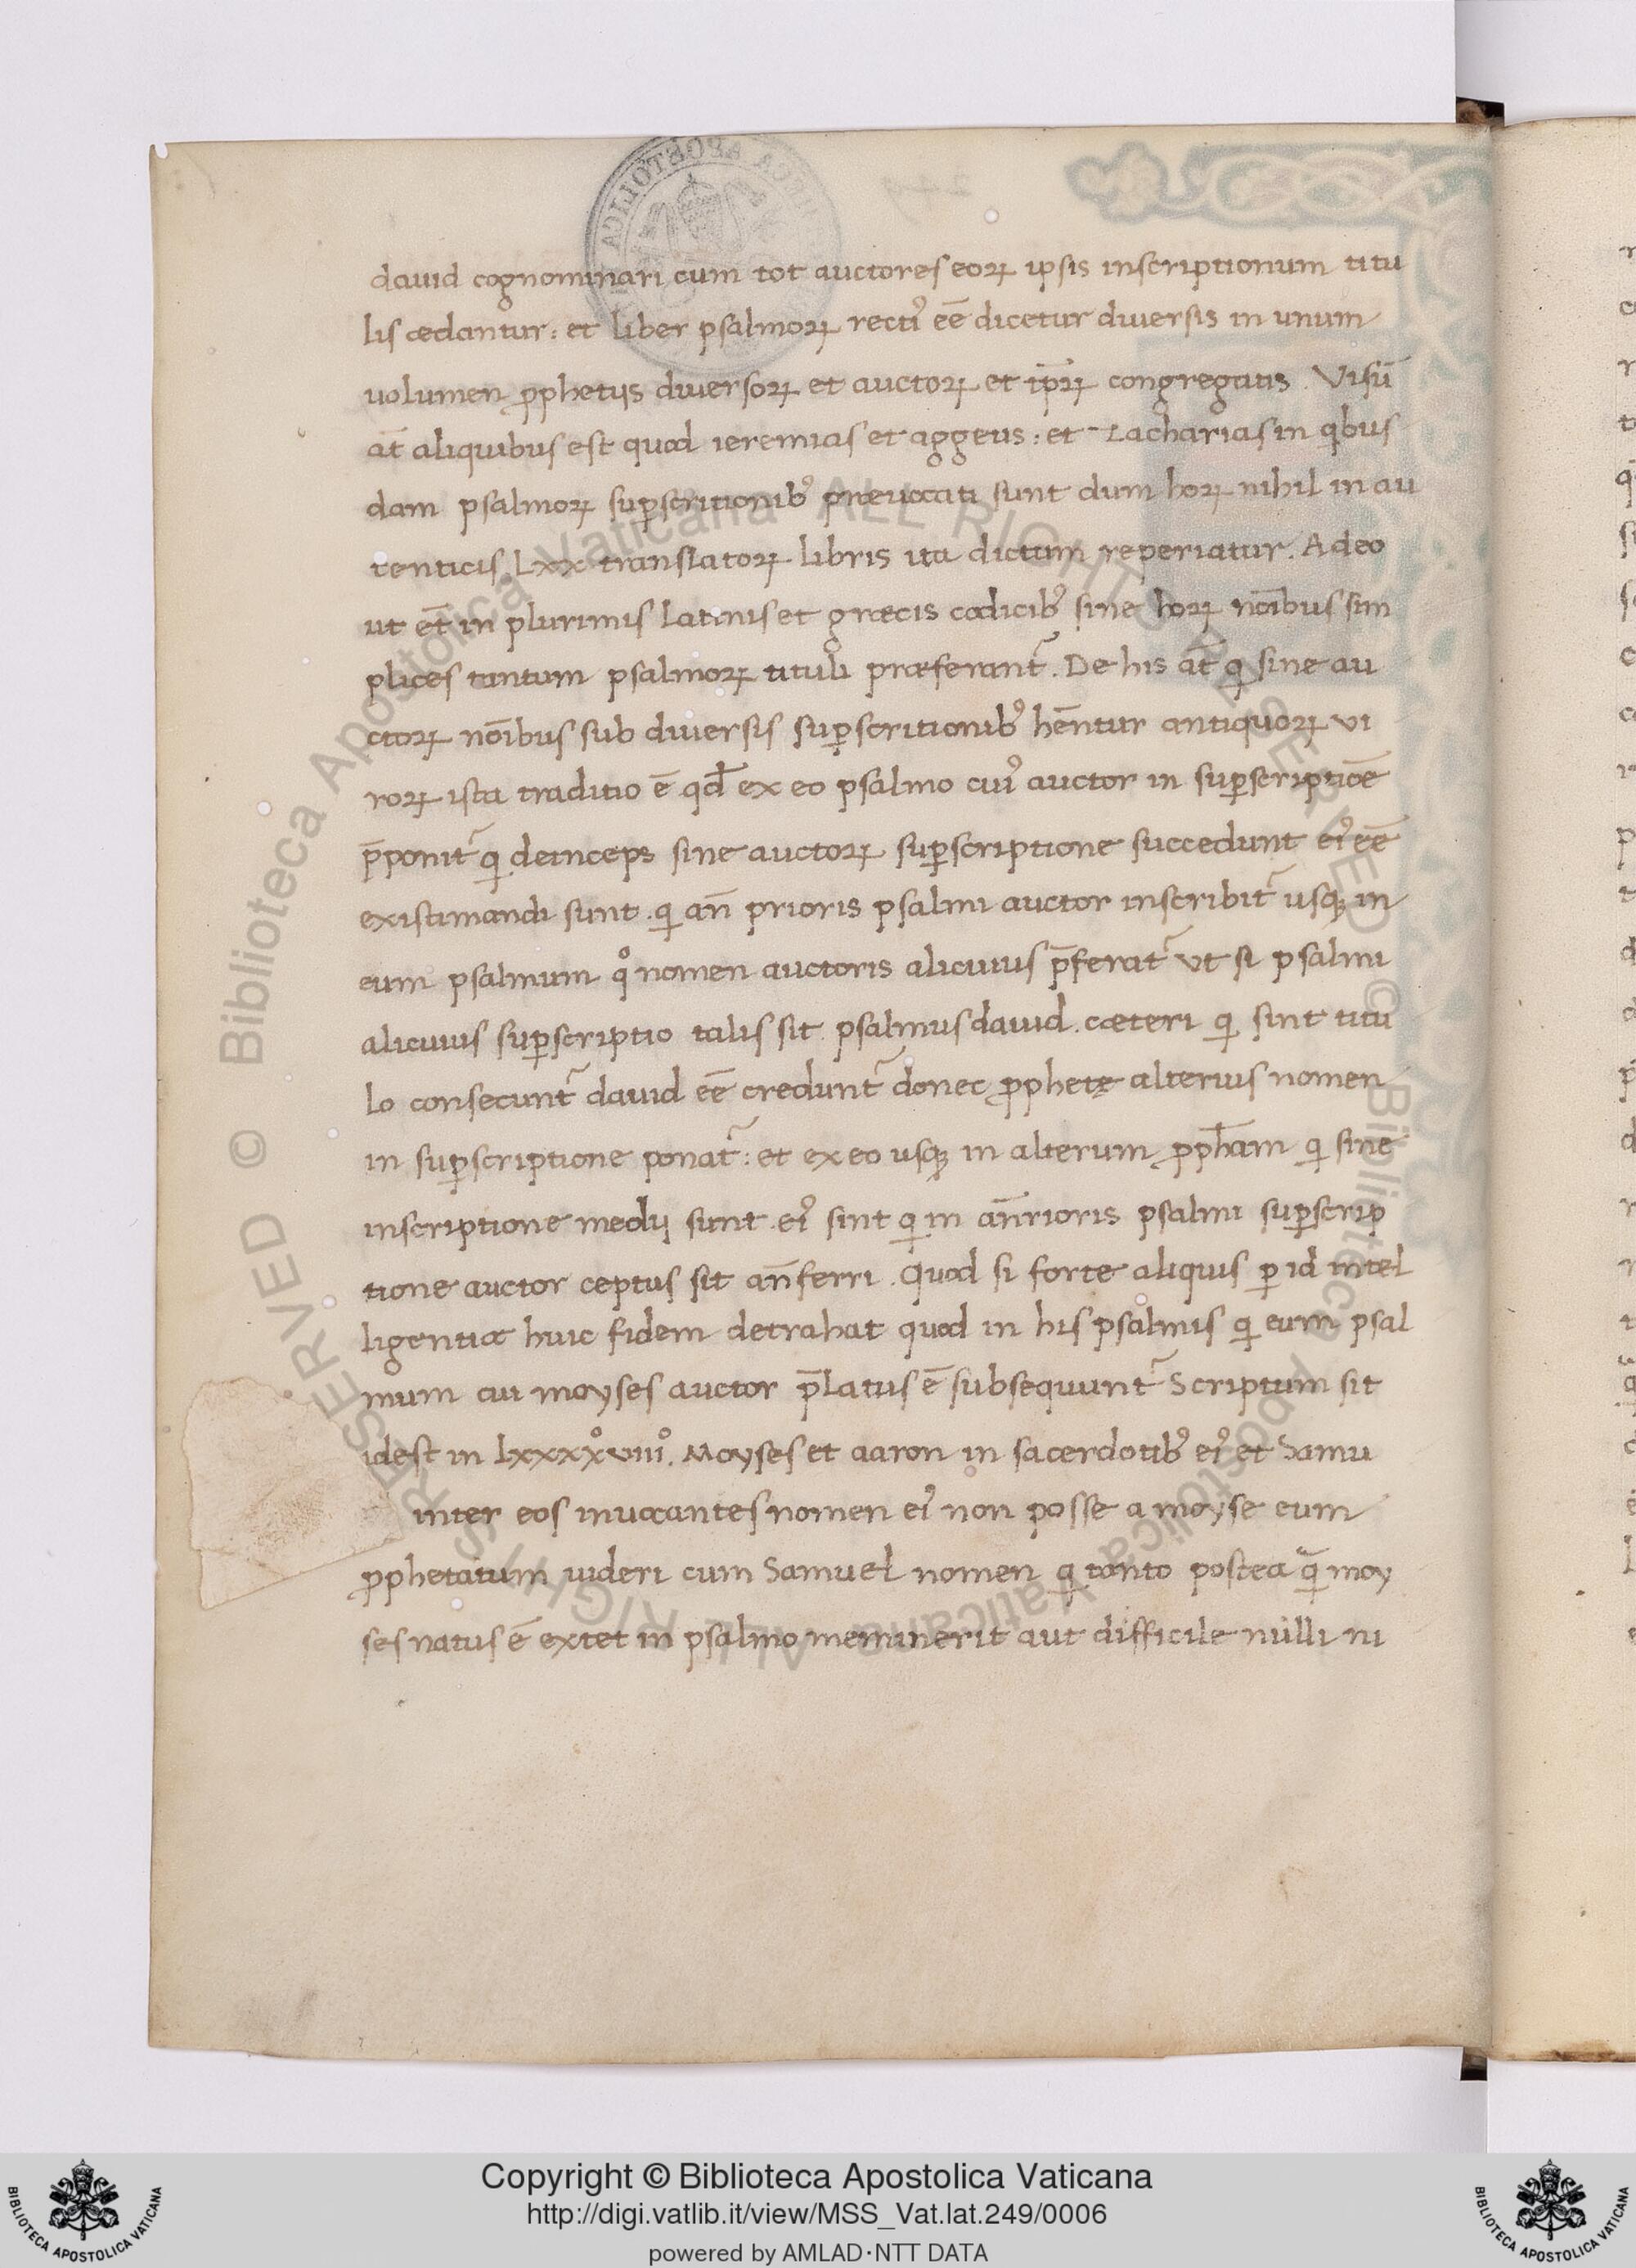 dauid cognominari cum tot auctores eoꝝ ipsis inscriptionum titu
lis ædantur: et liber psalmoꝝ recti᾽ eē dicetur diuersis in unum
uolumen ꝓphetijs diuersoꝝ et auctoꝝ et tp̄rꝝ congregatis. Visū
at̄ aliquibus est quod ieremias et aggeus: et zacharias in qbus
dam psalmoꝝ suꝑscritionib᾽ prænocati sunt dum hoꝝ nihil in au
tenticis Lxx translatoꝝ libris ita dictum reperiatur. Adeo
ut et̄ in plurimis latinis et græcis codicib᾽ sine hoꝝ noı̄bus sim
plices tantum psalmoꝝ tituli præferant᾽. De his at̄ qͥ sine au
ctoꝝ noı̄bus sub diuersis suꝑscritionib᾽ hēntur antiquoꝝ ui
roꝝ ista traditio ē qđ ex eo psalmo cui᾽ auctor in suꝑscriptiōe
p̄ponit᾽ qͥ deinceps sine auctoꝝ suꝑscriptione succedunt ei᾽ eē
existimandi sunt. qͥ an̄ prioris psalmi auctor inscribit᾽ usqꝫ in
eum psalmum qͦ nomen auctoris alicuius p̄ferat᾽ ut si psalmi
alicuius suꝑscriptio talis sit psalmus dauid. cæteri qͥ sint titu
lo consecunt᾽ dauid eē credunt᾽ donec ꝓphetę alterius nomen
in suꝑscriptione ponat᾽: et ex eo usqꝫ in alterum ꝓpħam qͥ sine
inscriptione medij sunt. ei᾽ sint qͥ in an̄rioris psalmi suꝑscrip
tione auctor ceptus sit an̄ferri. Quod si forte aliquis ꝑ id intel
ligentiæ huic fidem detrahat quod in his psalmis qͥ eum psal
mum cui moyses auctor p̄latus ē subsequunt᾽ Scriptum sit
idest in Lxxxxͦviiiͦ. Moyses et aaron in sacerdotib᾽ ei᾽ et Samu
inter eos inuocantes nomen ei᾽ non posse a moyse eum
ꝓphetatum uideri cum Samuel nomen qͥ tanto postea q̄ moy
ses natus ē extet in psalmo meminerit aut difficile nulli ni
Copyright © Biblioteca Apostolica Vaticana
http://digi.vatlib.it/view/MSS_Vat.lat.249/0006
powered by AMLAD·NTT DATA